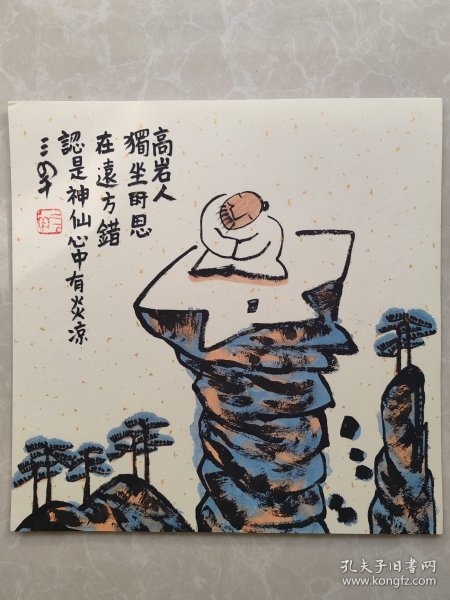 高岩人
獨坐 思
在遠方錯
認是神仙心中有炎凉
孔夫子旧书网
www.kongfz.com